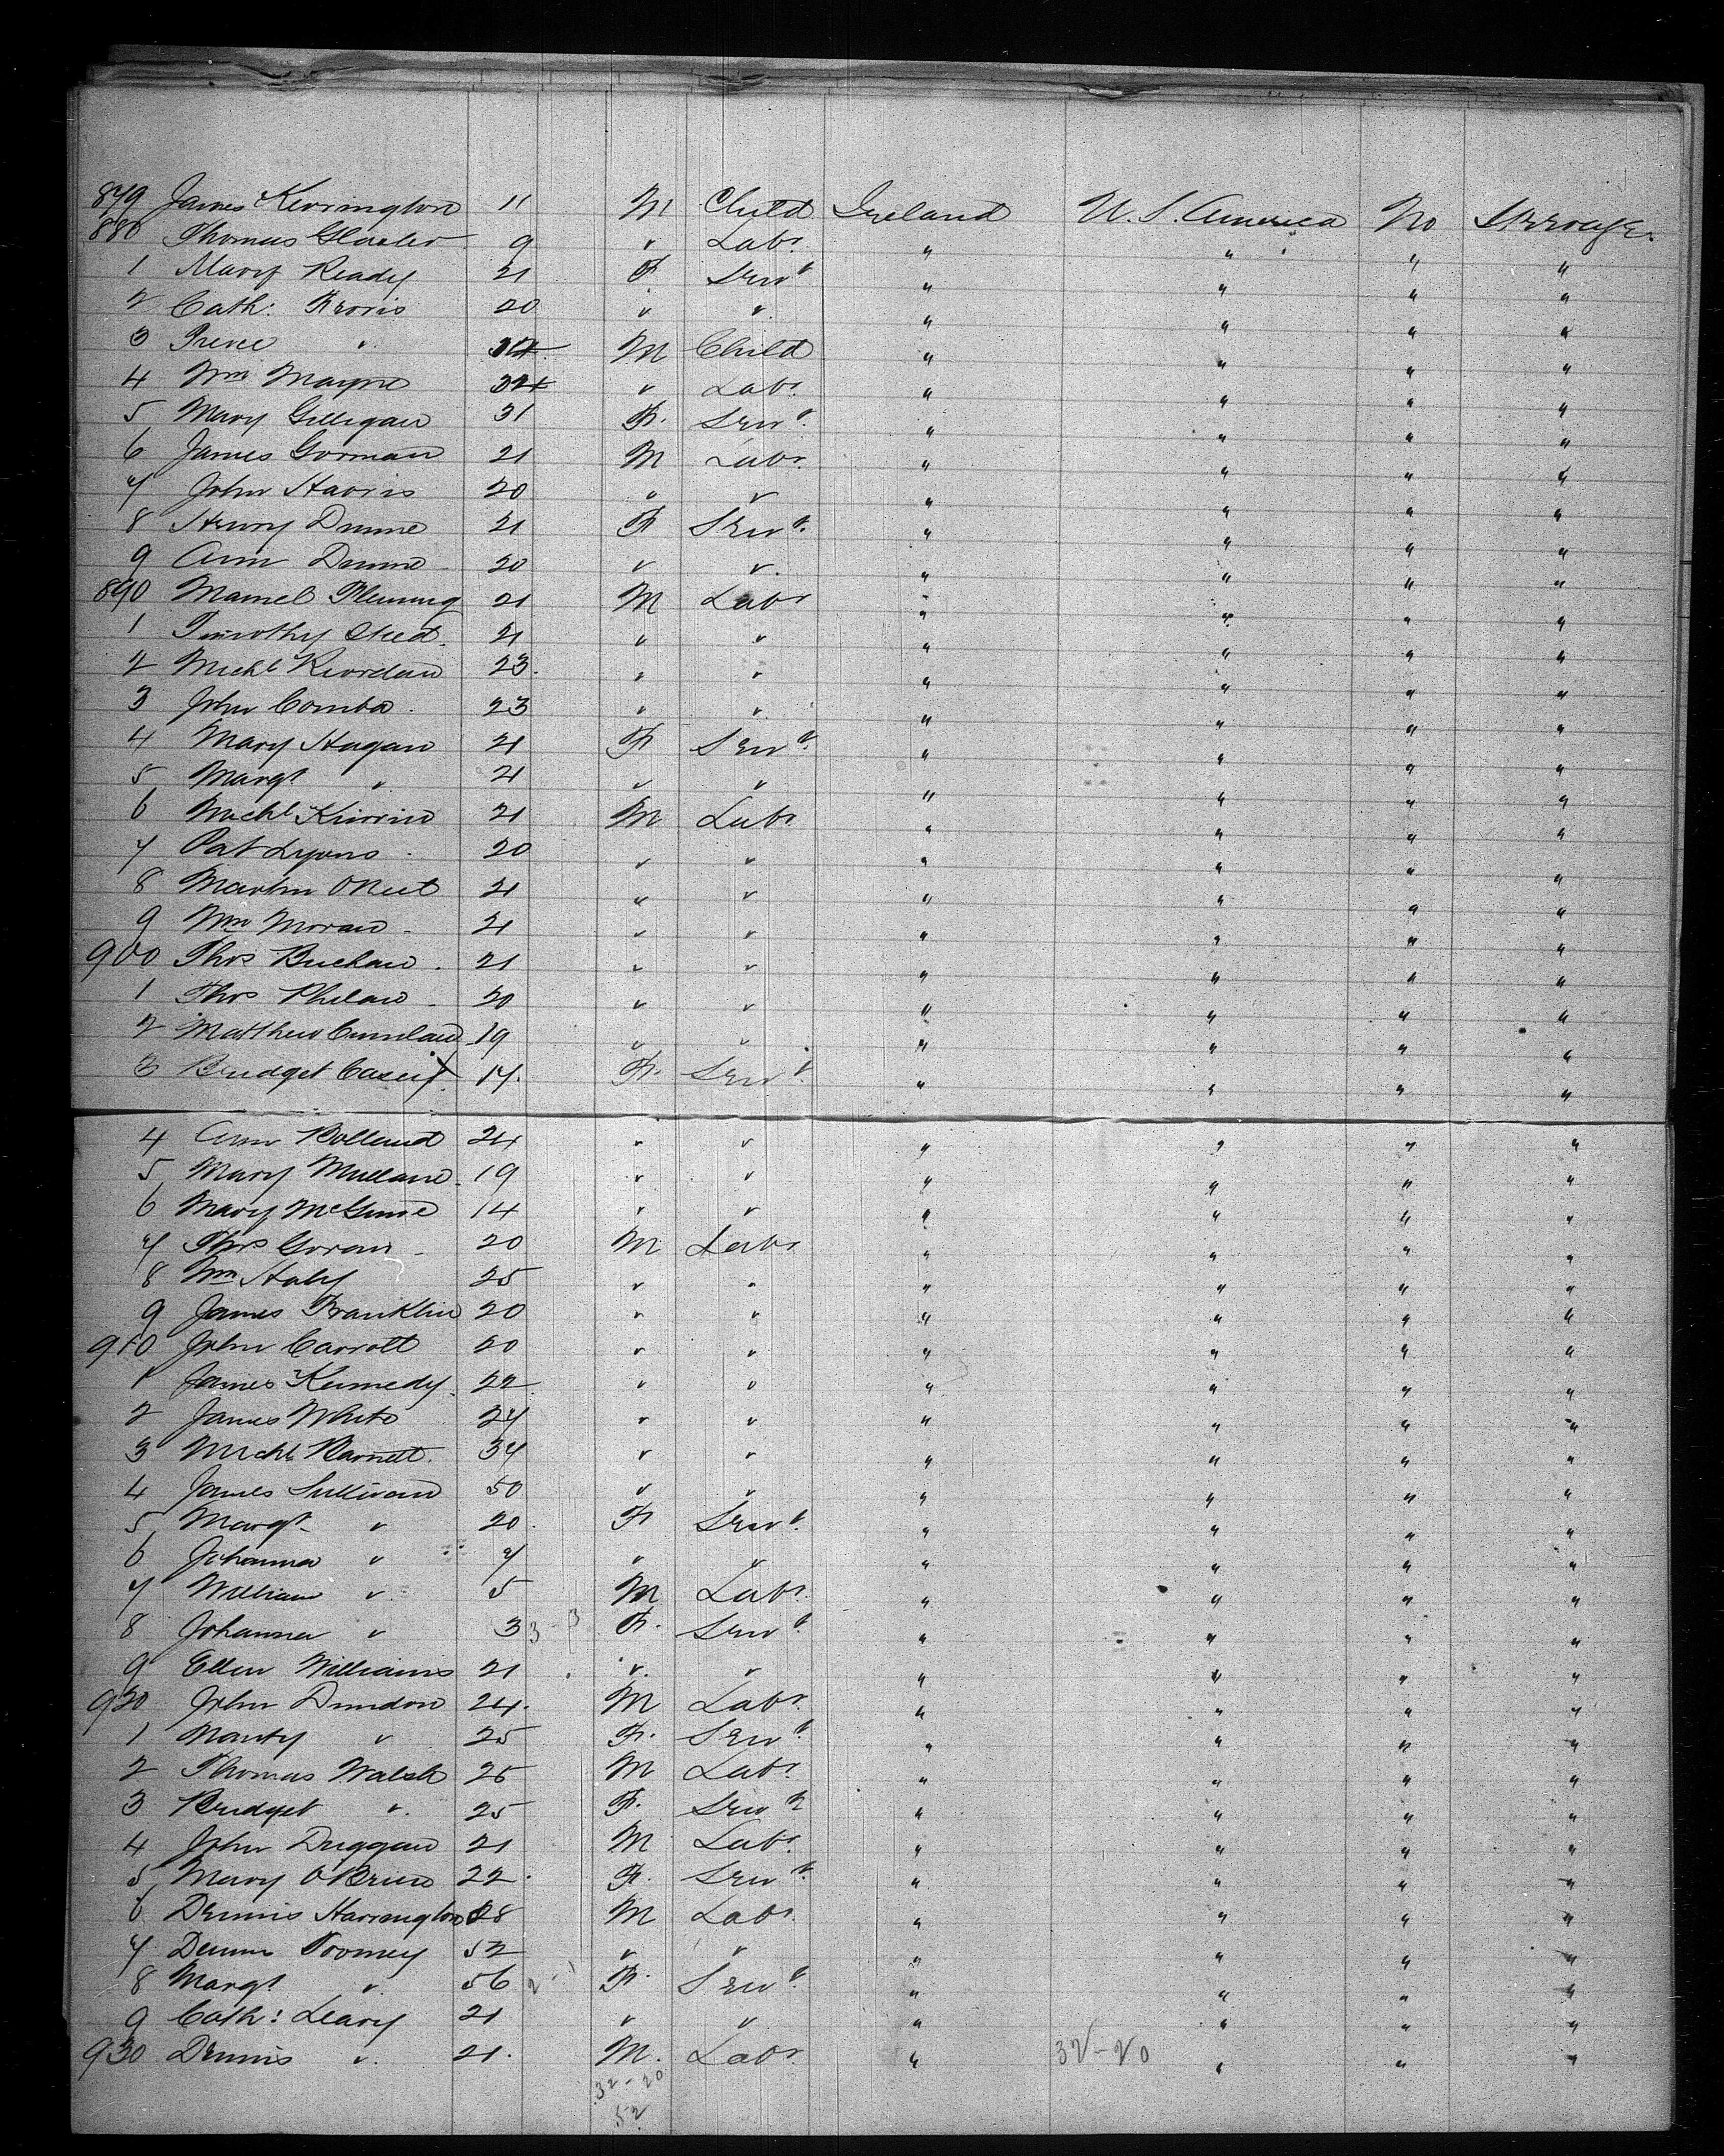 879 James Kerrington 11 M Child Ireland U.S. America No Steerage
880 Thomas 9 " Labr " " " "
1 Mary Ready 21 F. Servt " " " "
2 Cath: 20 " " " " " "
3 " M Child " " " "
4 Wm Mayne 34 " Labr " " " "
5 Mary Gilligan 31 F. Servt " " " "
6 James Gorman 21 M Labr " " " "
7 John Harris 20 " " " " " "
8 Henry Dunne 21 F Servt " " " "
9 Ann Dunne 20 " " " " " "
890 Fleming 21 M Labr " " " "
1 Timothy 21 " " " " " "
2 Michl Riordan 23. " " " " " "
3 John Comba 23 " " " " " "
4 Mary Hagan 21 F Servt " " " "
5 Margt " 21 " " " " " "
6 Michl 21 M Labr " " " "
7 Pat Lyons 20 " " " " " "
8 Martin O'Neil 21 " " " " " "
9 Wm Moran 21 " " " " " "
900 Thos 21 " " " " " "
1 Thos Phelan 20 " " " " " "
2 Matthew 19 " " " " " "
3 Bridget Casey 17. F. Servt " " " "
4 Ann Bolland 24 " " " " " "
5 Mary Mullane 19 " " " " " "
6 Mary 14 " " " " " "
7 Thos Goran 20 M Labr " " " "
8 Wm Haly 25 " " " " " "
9 James Franklin 20 " " " " " "
910 John Carroll 20 " " " " " "
1 James Kennedy 22. " " " " " "
2 James White 27 " " " " " "
3 Michl Barnett 37 " " " " " "
4 James Sullivan 50 " " " " " "
5 Margt " 20. F Servt " " " "
6 Johanna " 7 " " " " " "
7 William " 5 M Labr " " " "
8 Johanna " 3 F. Servt " " " "
9 Ellen Williams 21 " " " " " "
920 John Dundon 24. M Labr " " " "
1 " 25 F. Servt " " " "
2 Thomas Walsh 25 M Labr " " " "
3 Bridget " 25 F. Servt " " " "
4 John Duggan 21 M Labr " " " "
5 Mary O'Brien 22. F. Servt " " " "
6 Dennis Harrington 28 M Labr " " " "
7 Dennis Toomey 52 " " " " " "
8 Margt " 56 F. Servt " " " "
9 Cath: Leary 21 " " " " " "
930 Dennis " 21. M. Labr " 32-20 " " "
32-20
52